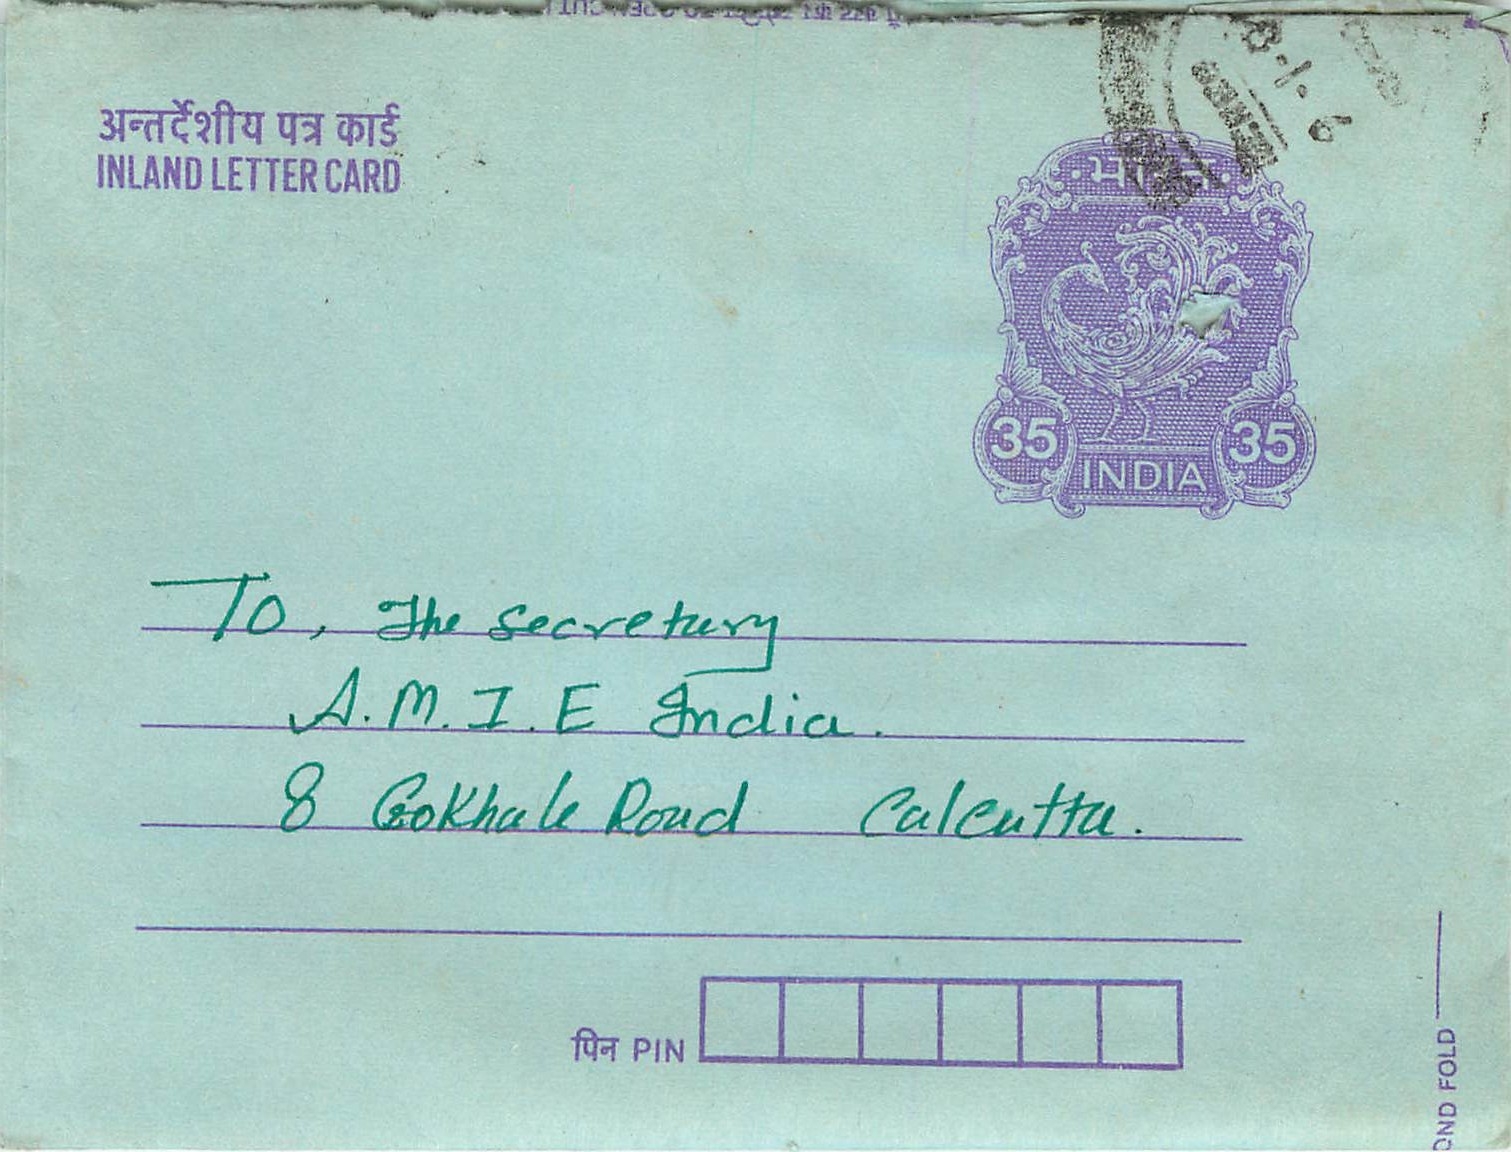 अन्तर्देशीय पत्र कार्ड
INLAND LETTER CARD
8.1.6
भारत
35 35
INDIA
To, The Secretary
A.M.I.E India.
8 Gokhale Road Calcutta.
पिन PIN
OND FOLD